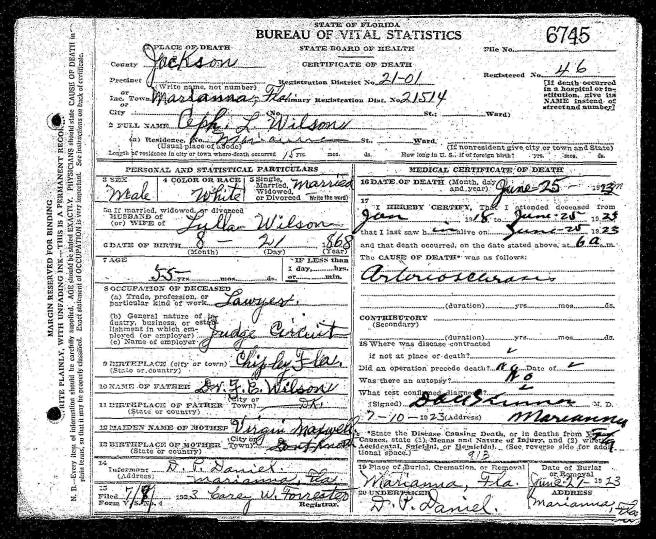 STATE OF FLORIDA
BUREAU OF VITAL STATISTICS
6745
PLACE OF DEATH
STATE BOARD OF HEALTH
File No.
County Jackson
CERTIFICATE OF DEATH
Registered No. 46
Precinct
(Write name, not number)
Registration District No. 21-01
[If death occurred in a hospital or institution, give its NAME instead of street and number]
or
Inc. Town Marianna, Fla. Primary Registration Dist. No. 21514
or
City (No. St.; Ward)
2 FULL NAME Ceph. L. Wilson
(a) Residence. St., Ward.
(Usual place of abode) (If nonresident give city or town and State)
Length of residence in city or town where death occurred 15 yrs. mos. ds. How long in U. S., if of foreign birth? yrs. mos. ds.
PERSONAL AND STATISTICAL PARTICULARS
3 SEX Male
4 COLOR OR RACE White
5 Single, Married, Widowed, or Divorced (Write the word) Married
5a If married, widowed, or divorced
HUSBAND of
(or) WIFE of Lylla Wilson
6 DATE OF BIRTH 8 - 21 1868
(Month) (Day) (Year)
7 AGE 55 yrs. mos. ds.
*IF LESS than 1 day, hrs. or min.
8 OCCUPATION OF DECEASED
(a) Trade, profession, or particular kind of work Lawyer.
(b) General nature of industry, business, or establishment in which employed (or employer) Judge Circuit
(c) Name of employer
9 BIRTHPLACE (city or town) Chipley Fla.
(State or country)
10 NAME OF FATHER Dr. F. E. Wilson
11 BIRTHPLACE OF FATHER (City or Town) DK.
(State or country)
12 MAIDEN NAME OF MOTHER Virgin Maxwell
13 BIRTHPLACE OF MOTHER (City or Town) Dont Know
(State or country)
14
Informant D. P. Daniel.
Marianna, Fla.
15
Filed 7/9/ 1923 Carey W. Forrester
Form V. S. No. 4 Registrar.
MEDICAL CERTIFICATE OF DEATH
16 DATE OF DEATH (Month, day and year) June-25- 1923
17
I HEREBY CERTIFY, That I attended deceased from
Jan 1918 to June-25 1923
that I last saw him alive on June-25 1923
and that death occurred, on the date stated above, at 6 a m.
The CAUSE OF DEATH* was as follows:
Arteriosclerosis
(duration) yrs. mos. ds.
CONTRIBUTORY
(Secondary)
(duration) yrs. mos. ds.
18 Where was disease contracted
if not at place of death?
Did an operation precede death? no Date of
Was there an autopsy? No
What test confirmed diagnosis?
(Signed) M. D.
7-10-1923 (Address) Marianna Fla
*State the Disease Causing Death, or in deaths from Violent Causes, state (1) Means and Nature of Injury, and (2) whether Accidental, Suicidal, or Homicidal. (See reverse side for additional space.)
913
19 Place of Burial, Cremation, or Removal
Marianna, Fla.
Date of Burial or Removal
June-27-1923
20 UNDERTAKER
D. P. Daniel.
ADDRESS
Marianna, Fla
MARGIN RESERVED FOR BINDING
WRITE PLAINLY, WITH UNFADING INK—THIS IS A PERMANENT RECORD
N. B.—Every item of information should be carefully supplied. AGE should be stated EXACTLY. PHYSICIANS should state CAUSE OF DEATH in plain terms, so that it may be properly classified. Exact statement of OCCUPATION is very important. See instructions on back of certificate.